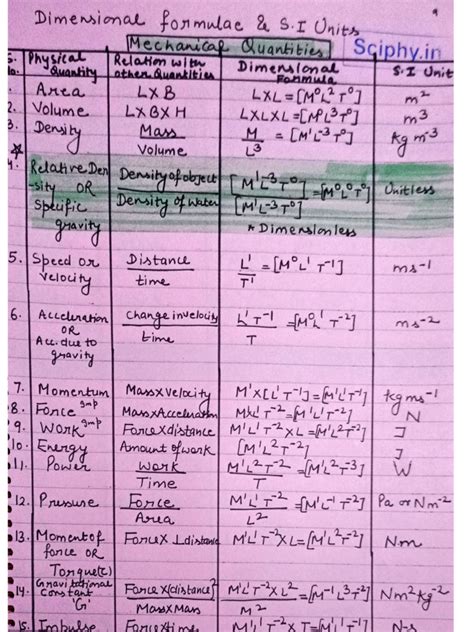 Dimensional formulae & S.I Units
9
Mechanical Quantities
Sciphy.in
S. No. Physical Quantity | Relation with other Quantities | Dimensional Formula | S.I Unit
1. Area | L×B | L×L = [M⁰L²T⁰] | m²
2. Volume | L×B×H | L×L×L = [M⁰L³T⁰] | m³
3. Density | Mass / Volume | M / L³ = [M¹L⁻³T⁰] | Kg m⁻³
4. Relative Den-sity OR Specific gravity | Density of object / Density of water | [M¹L⁻³T⁰] / [M¹L⁻³T⁰] = [M⁰L⁰T⁰] * Dimensionless | Unitless
5. Speed or Velocity | Distance / time | L¹ / T¹ = [M⁰L¹T⁻¹] | ms⁻¹
6. Acceleration OR Acc. due to gravity | Change in velocity / time | L¹T⁻¹ / T = [M⁰L¹T⁻²] | ms⁻²
7. Momentum | Mass×Velocity | M¹×[L¹T⁻¹] = [M¹L¹T⁻¹] | kgms⁻¹
8. Force imp | Mass×Acceleration | M×L¹T⁻² = [M¹L¹T⁻²] | N
9. Work imp | Force×distance | M¹L¹T⁻²×L = [M¹L²T⁻²] | J
10. Energy | Amount of work | [M¹L²T⁻²] | J
11. Power | Work / Time | M¹L²T⁻² / T = [M¹L²T⁻³] | W
12. Pressure | Force / Area | M¹L¹T⁻² / L² = [M¹L⁻¹T⁻²] | Pa or Nm⁻²
13. Moment of force OR Torque(τ) | Force×⊥distance | M¹L¹T⁻²×L = [M¹L²T⁻²] | Nm
14. Gravitational Constant 'G' | Force×(distance)² / Mass×Mass | M¹L¹T⁻²×L² / M² = [M⁻¹L³T⁻²] | Nm²kg⁻²
15. Impulse | Force×time | M¹L¹T⁻²×T = [M¹L¹T⁻¹] | N-s